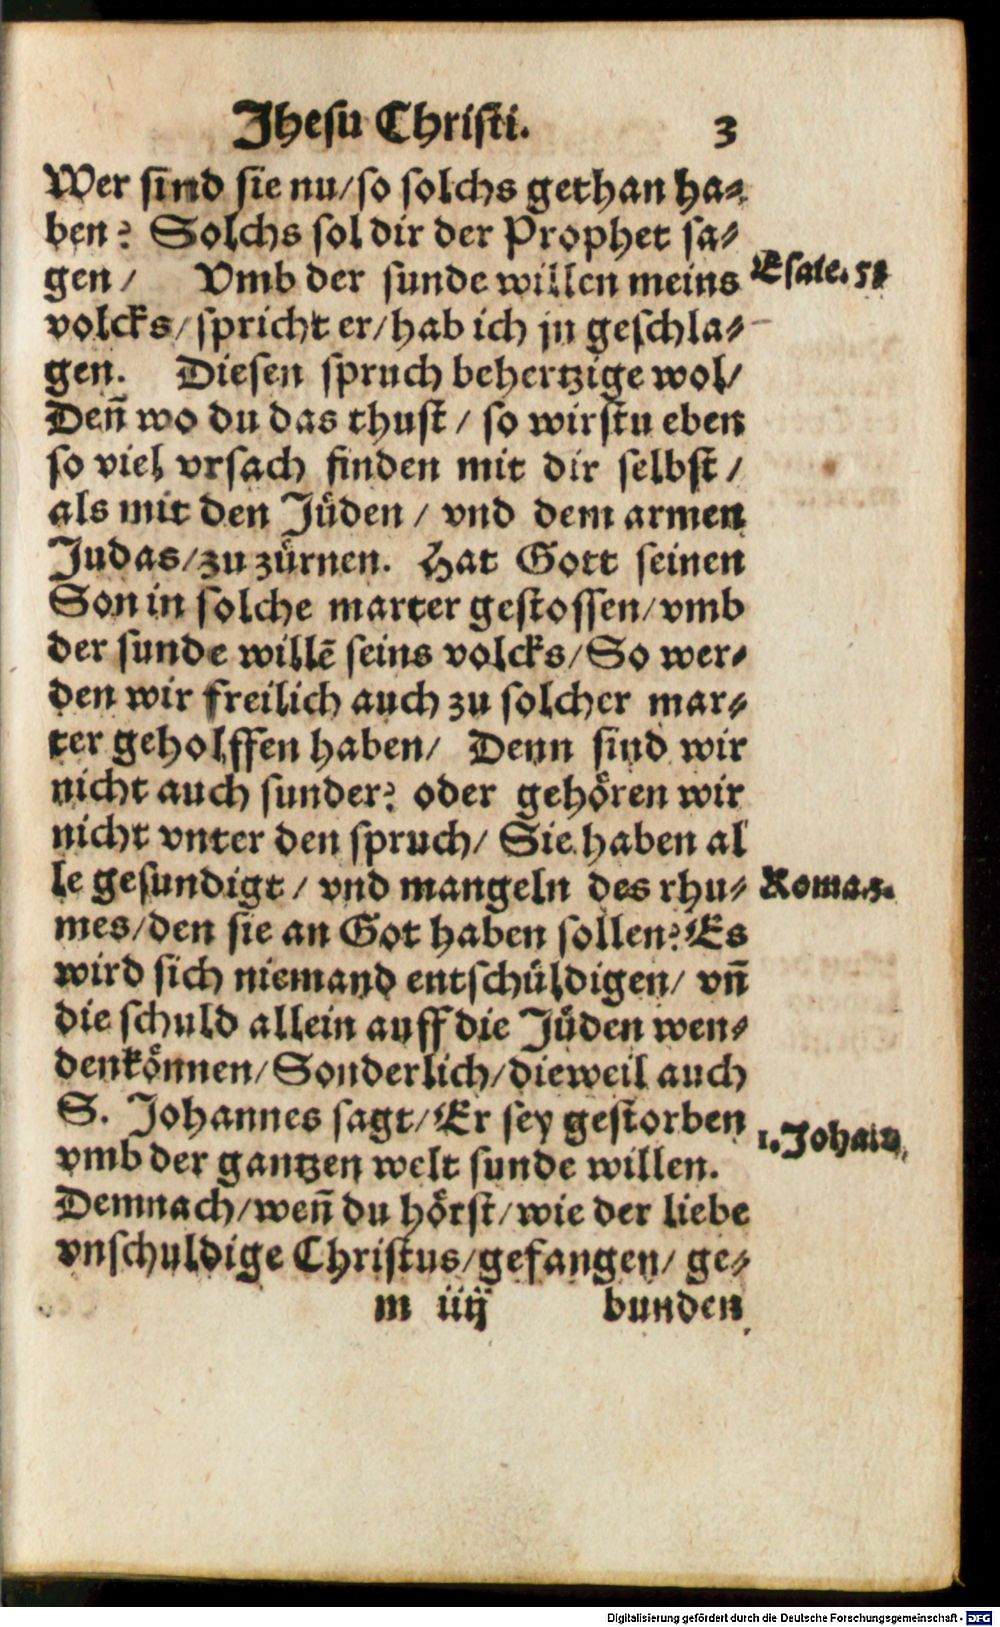 Jhesu Christi. 3
Wer sind sie nu/so solchs gethan ha⸗
ben? Solchs sol dir der Prophet sa⸗
gen/ Vmb der sunde willen meins
Esaie. 53
volcks/spricht er/hab ich jn geschla⸗
gen. Diesen spruch behertzige wol/
Deñ wo du das thust/ so wirstu eben
so viel vrsach finden mit dir selbst/
als mit den Jüden/ vnd dem armen
Judas/zu zürnen. Hat Gott seinen
Son in solche marter gestossen/vmb
der sunde willē seins volcks/So wer⸗
den wir freilich auch zu solcher mar⸗
ter geholffen haben/ Denn sind wir
nicht auch sunder? oder gehören wir
nicht vnter den spruch/ Sie haben al
le gesundigt/ vnd mangeln des rhu⸗
Roma.3.
mes/den sie an Got haben sollen? Es
wird sich niemand entschüldigen/ vñ
die schuld allein auff die Jüden wen⸗
den können/Sonderlich/dieweil auch
S. Johannes sagt/Er sey gestorben
1. Joha
vmb der gantzen welt sunde willen.
Demnach/weñ du hörst/wie der liebe
vnschuldige Christus/gefangen/ ge⸗
m iiij bunden
Digitalisierung gefördert durch die Deutsche Forschungsgemeinschaft - DFG